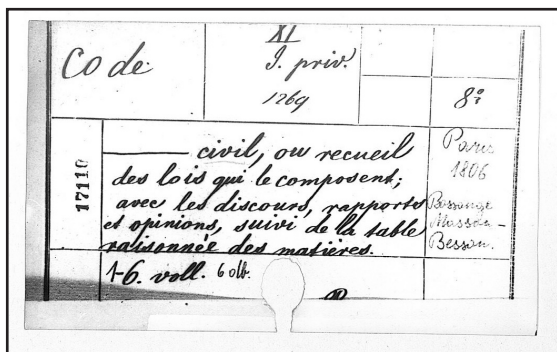 XI
Code
I. priv.
1269
8º
17110
——— civil, ou recueil
des lois qui le composent;
avec les discours, rapports
et opinions, suivi de la table
raisonnée des matières.
1-6. voll.
Paris
1806
Bossange
Masson
Besson.